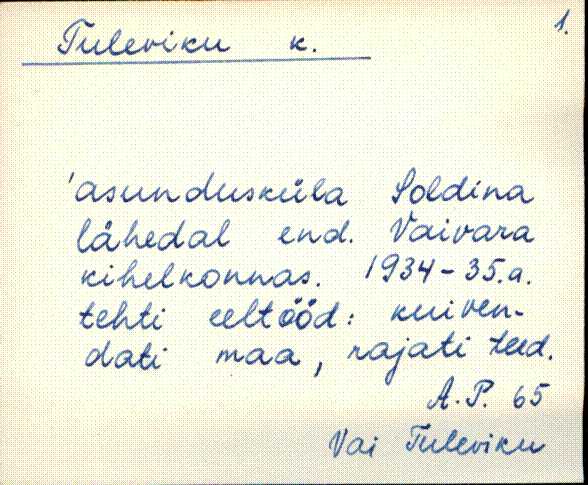 1.
Tuleviku k.
'asundusküla Soldina
lähedal end. Vaivara
kihelkonnas. 1934-35.a.
tehti eeltööd: kuiven-
dati maa, rajati teed.
A.P. 65
Vai Tuleviku